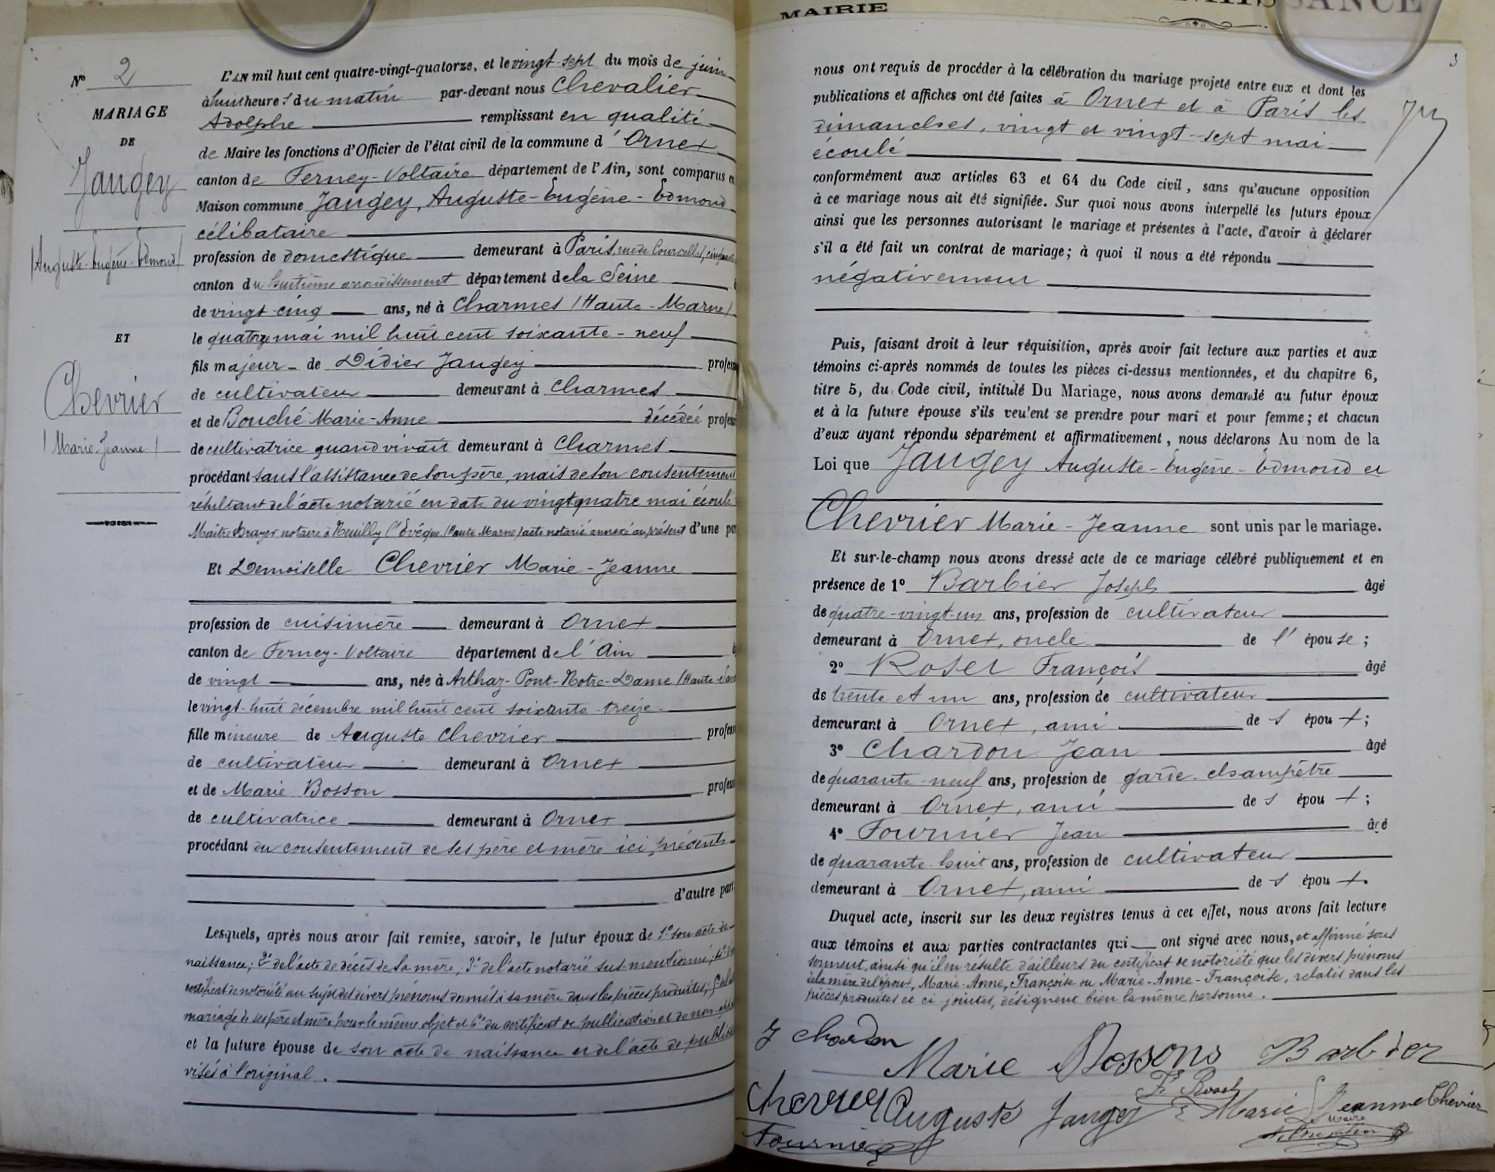 MAIRIE
Nº 2
MARIAGE
DE
Jaugey
(Auguste-Eugène-Edmond)
ET
Chevrier
(Marie-Jeanne)
L'AN mil huit cent quatre-vingt-quatorze, et le vingt-sept du mois de juin
à huit heures du matin par-devant nous Chevalier
Adolphe remplissant en qualité
de Maire les fonctions d'Officier de l'état civil de la commune d'Ornex
canton de Ferney-Voltaire département de l'Ain, sont comparus en
Maison commune Jaugey, Auguste-Eugène-Edmond
célibataire
profession de domestique demeurant à Paris rue de Courcelles,
canton du huitième arrondissement département de la Seine
de vingt-cinq ans, né à Charmes (Haute-Marne)
le quatre mai mil huit cent soixante-neuf
fils majeur de Didier Jaugey profess
de cultivateur demeurant à Charmes
et de Bouché Marie-Anne décédée profess
de cultivatrice quand vivait demeurant à Charmes
procédant sans l'assistance de son père, mais de son consentement
résultant de l'acte notarié en date du vingt quatre mai écoulé
Maître notaire à Neuilly l'Evêque (Haute Marne) acte notarié annexé au présent d'une par
Et Demoiselle Chevrier Marie-Jeanne
profession de cuisinière demeurant à Ornex
canton de Ferney-Voltaire département de l'Ain
de vingt ans, née à Arthaz-Pont-Notre-Dame (Haute
le vingt-huit décembre mil huit cent soixante-treize
fille mineure de Auguste Chevrier profess
de cultivateur demeurant à Ornex
et de Marie Bosson profess
de cultivatrice demeurant à Ornex
procédant du consentement de ses père et mère ici présents
d'autre part
Lesquels, après nous avoir fait remise, savoir, le futur époux de 1º son acte de
naissance; 2º de l'acte de décès de sa mère; 3º de l'acte notarié sus mentionné; 4º
certificat de notoriété au sujet des divers prénoms donnés à sa mère dans les pièces produites; 5º
mariage de ses père et mère pour le même objet et 6º du certificat de publication et de non
et la future épouse de son acte de naissance et de l'acte de
visés à l'original.
3
nous ont requis de procéder à la célébration du mariage projeté entre eux et dont les
publications et affiches ont été faites à Ornex et à Paris les
dimanches, vingt et vingt-sept mai
écoulé
conformément aux articles 63 et 64 du Code civil, sans qu'aucune opposition
à ce mariage nous ait été signifiée. Sur quoi nous avons interpellé les futurs époux
ainsi que les personnes autorisant le mariage et présentes à l'acte, d'avoir à déclarer
s'il a été fait un contrat de mariage; à quoi il nous a été répondu
négativement
Puis, faisant droit à leur réquisition, après avoir fait lecture aux parties et aux
témoins ci-après nommés de toutes les pièces ci-dessus mentionnées, et du chapitre 6,
titre 5, du Code civil, intitulé Du Mariage, nous avons demandé au futur époux
et à la future épouse s'ils veulent se prendre pour mari et pour femme; et chacun
d'eux ayant répondu séparément et affirmativement, nous déclarons Au nom de la
Loi que Jaugey Auguste-Eugène-Edmond et
Chevrier Marie-Jeanne sont unis par le mariage.
Et sur-le-champ nous avons dressé acte de ce mariage célébré publiquement et en
présence de 1º Barbier Joseph âgé
de quatre-vingt-un ans, profession de cultivateur
demeurant à Ornex, oncle de l'épouse;
2º Roset François âgé
de trente et un ans, profession de cultivateur
demeurant à Ornex, ami de s époux;
3º Chardon Jean âgé
de quarante-neuf ans, profession de garde-champêtre
demeurant à Ornex, ami de s époux;
4º Fournier Jean âgé
de quarante-huit ans, profession de cultivateur
demeurant à Ornex, ami de s époux.
Duquel acte, inscrit sur les deux registres tenus à cet effet, nous avons fait lecture
aux témoins et aux parties contractantes qui ont signé avec nous, et affirmé sous
serment, ainsi qu'il en résulte d'ailleurs du certificat de notoriété que les divers prénoms
de la mère de l'époux, Marie-Anne, Françoise ou Marie-Anne-Françoise, relatés dans les
pièces produites et ci jointes, désignent bien la même personne.
J Chardon
Marie Bossons Barbier
Chevrier Auguste Jaugey Marie Jeanne Chevrier
Fournier
Maire